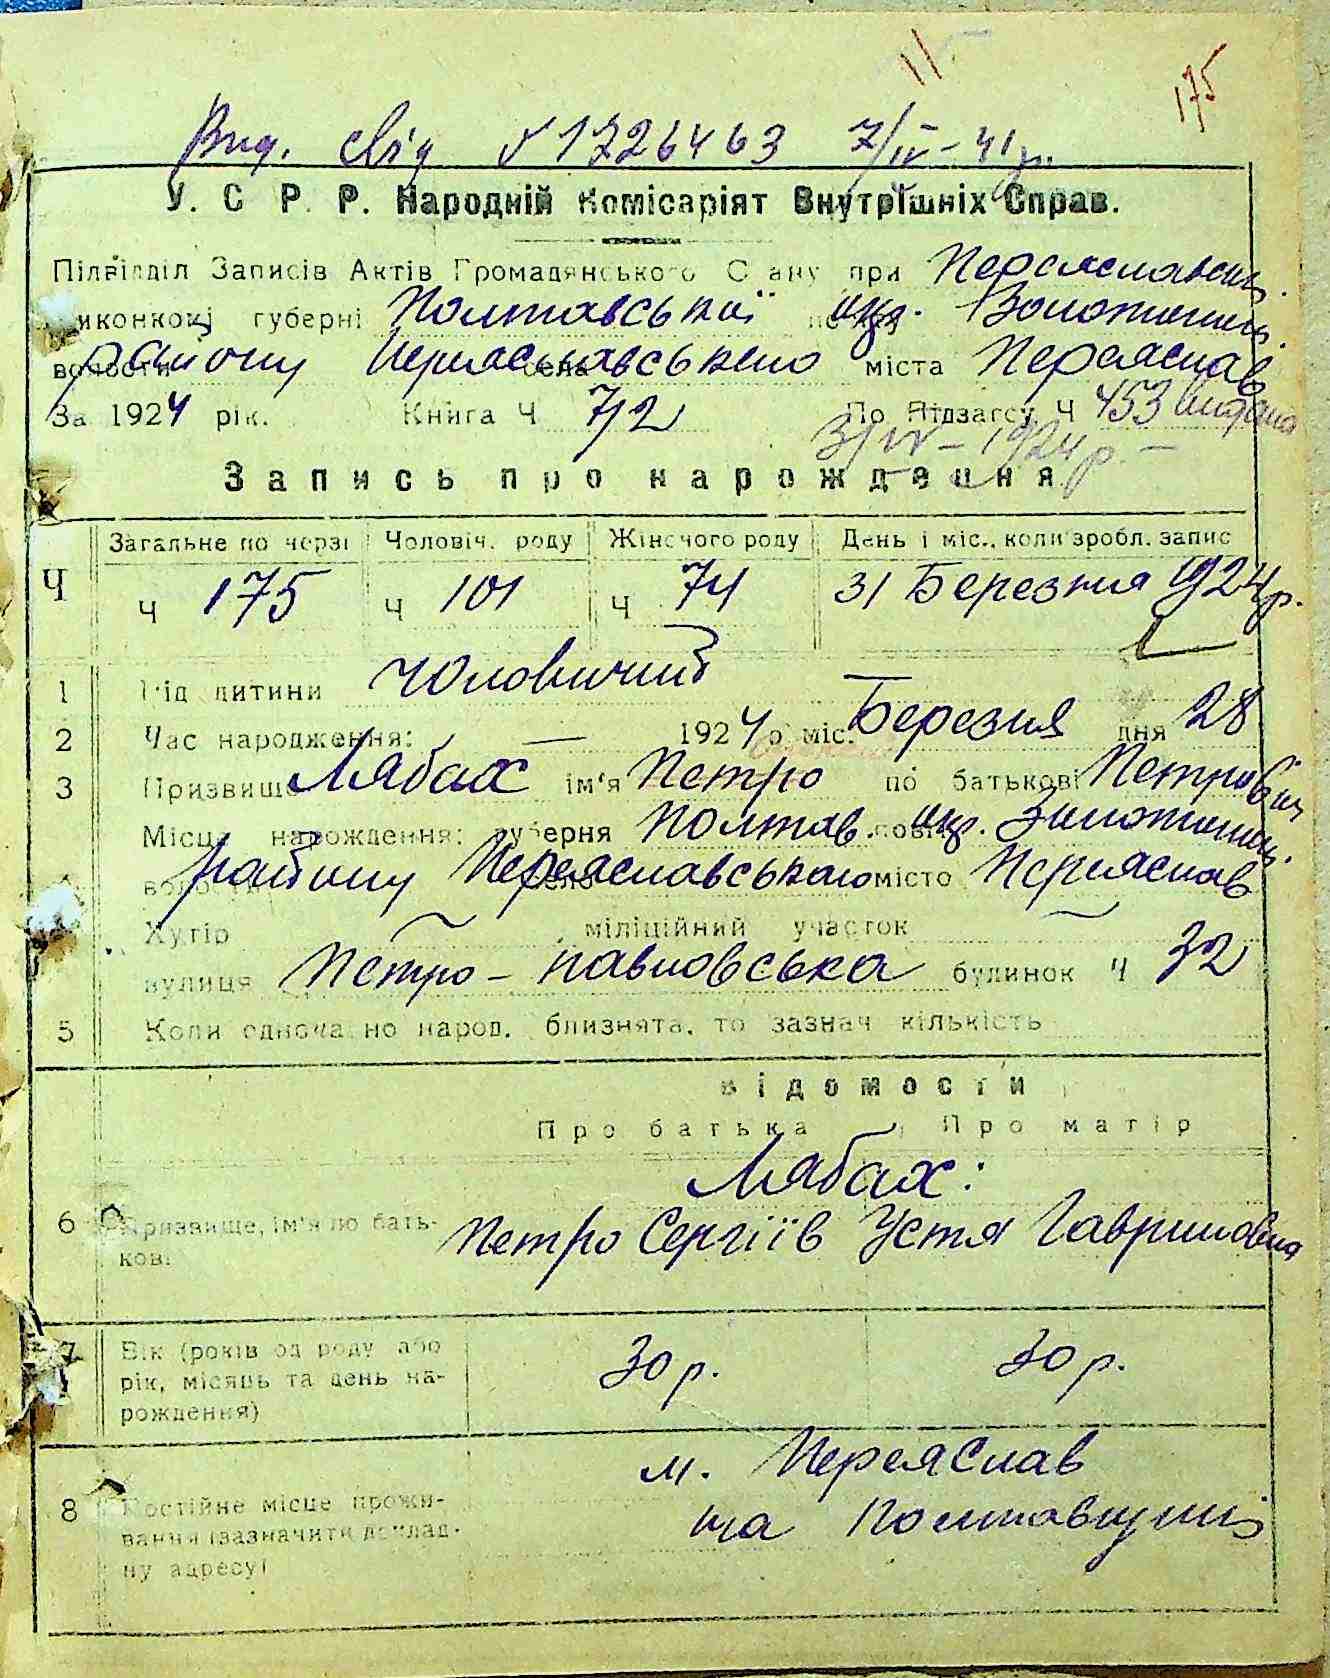 11
175
Вид. свід № 1226463 7/IV-41р.
У. С Р. Р. Народній Комісаріят Внутрішніх Справ.
Підвідділ Записів Актів Громадянського Стану при Переяславськ.
виконкомі губерні Полтавської окр. Золотоніш.
волости району Переяславського села міста Переяслав
За 1924 рік. Книга Ч 72 По Підзагсу Ч 453 видана
31/IV-1924р.-
Запись про нарождення
Загальне по черзі Чоловіч. роду Жіночого роду День і міс., коли зробл. запис
Ч Ч 175 Ч 101 Ч 74 31 Березня 1924р.
1 Рід дитини чоловичий
2 Час народження: — 1924 р. міс. Березня дня 28
3 Призвище Лябах ім'я Петро по батькові Петрович
Місце нарождення: губерня Полтав. повіт окр. Золотоніш.
4 волость району село Переяславського місто Переяслав
Хутір міліційний участок
вулиця Петро-павловська будинок Ч 32
5 Коли одночасно народ. близнята, то зазнач кількість
Відомости
Про батька Про матір
Лябах:
6 Призвище, ім'я по бать- Петро Сергіїв Устя Гавриловна
кові
7 Вік (років од роду або 30 р. 30 р.
рік, місяць та день на-
рождення)
м. Переяслав
8 Постійне місце прожи-
вання (зазначити доклад- на Полтавщині
ну адресу)